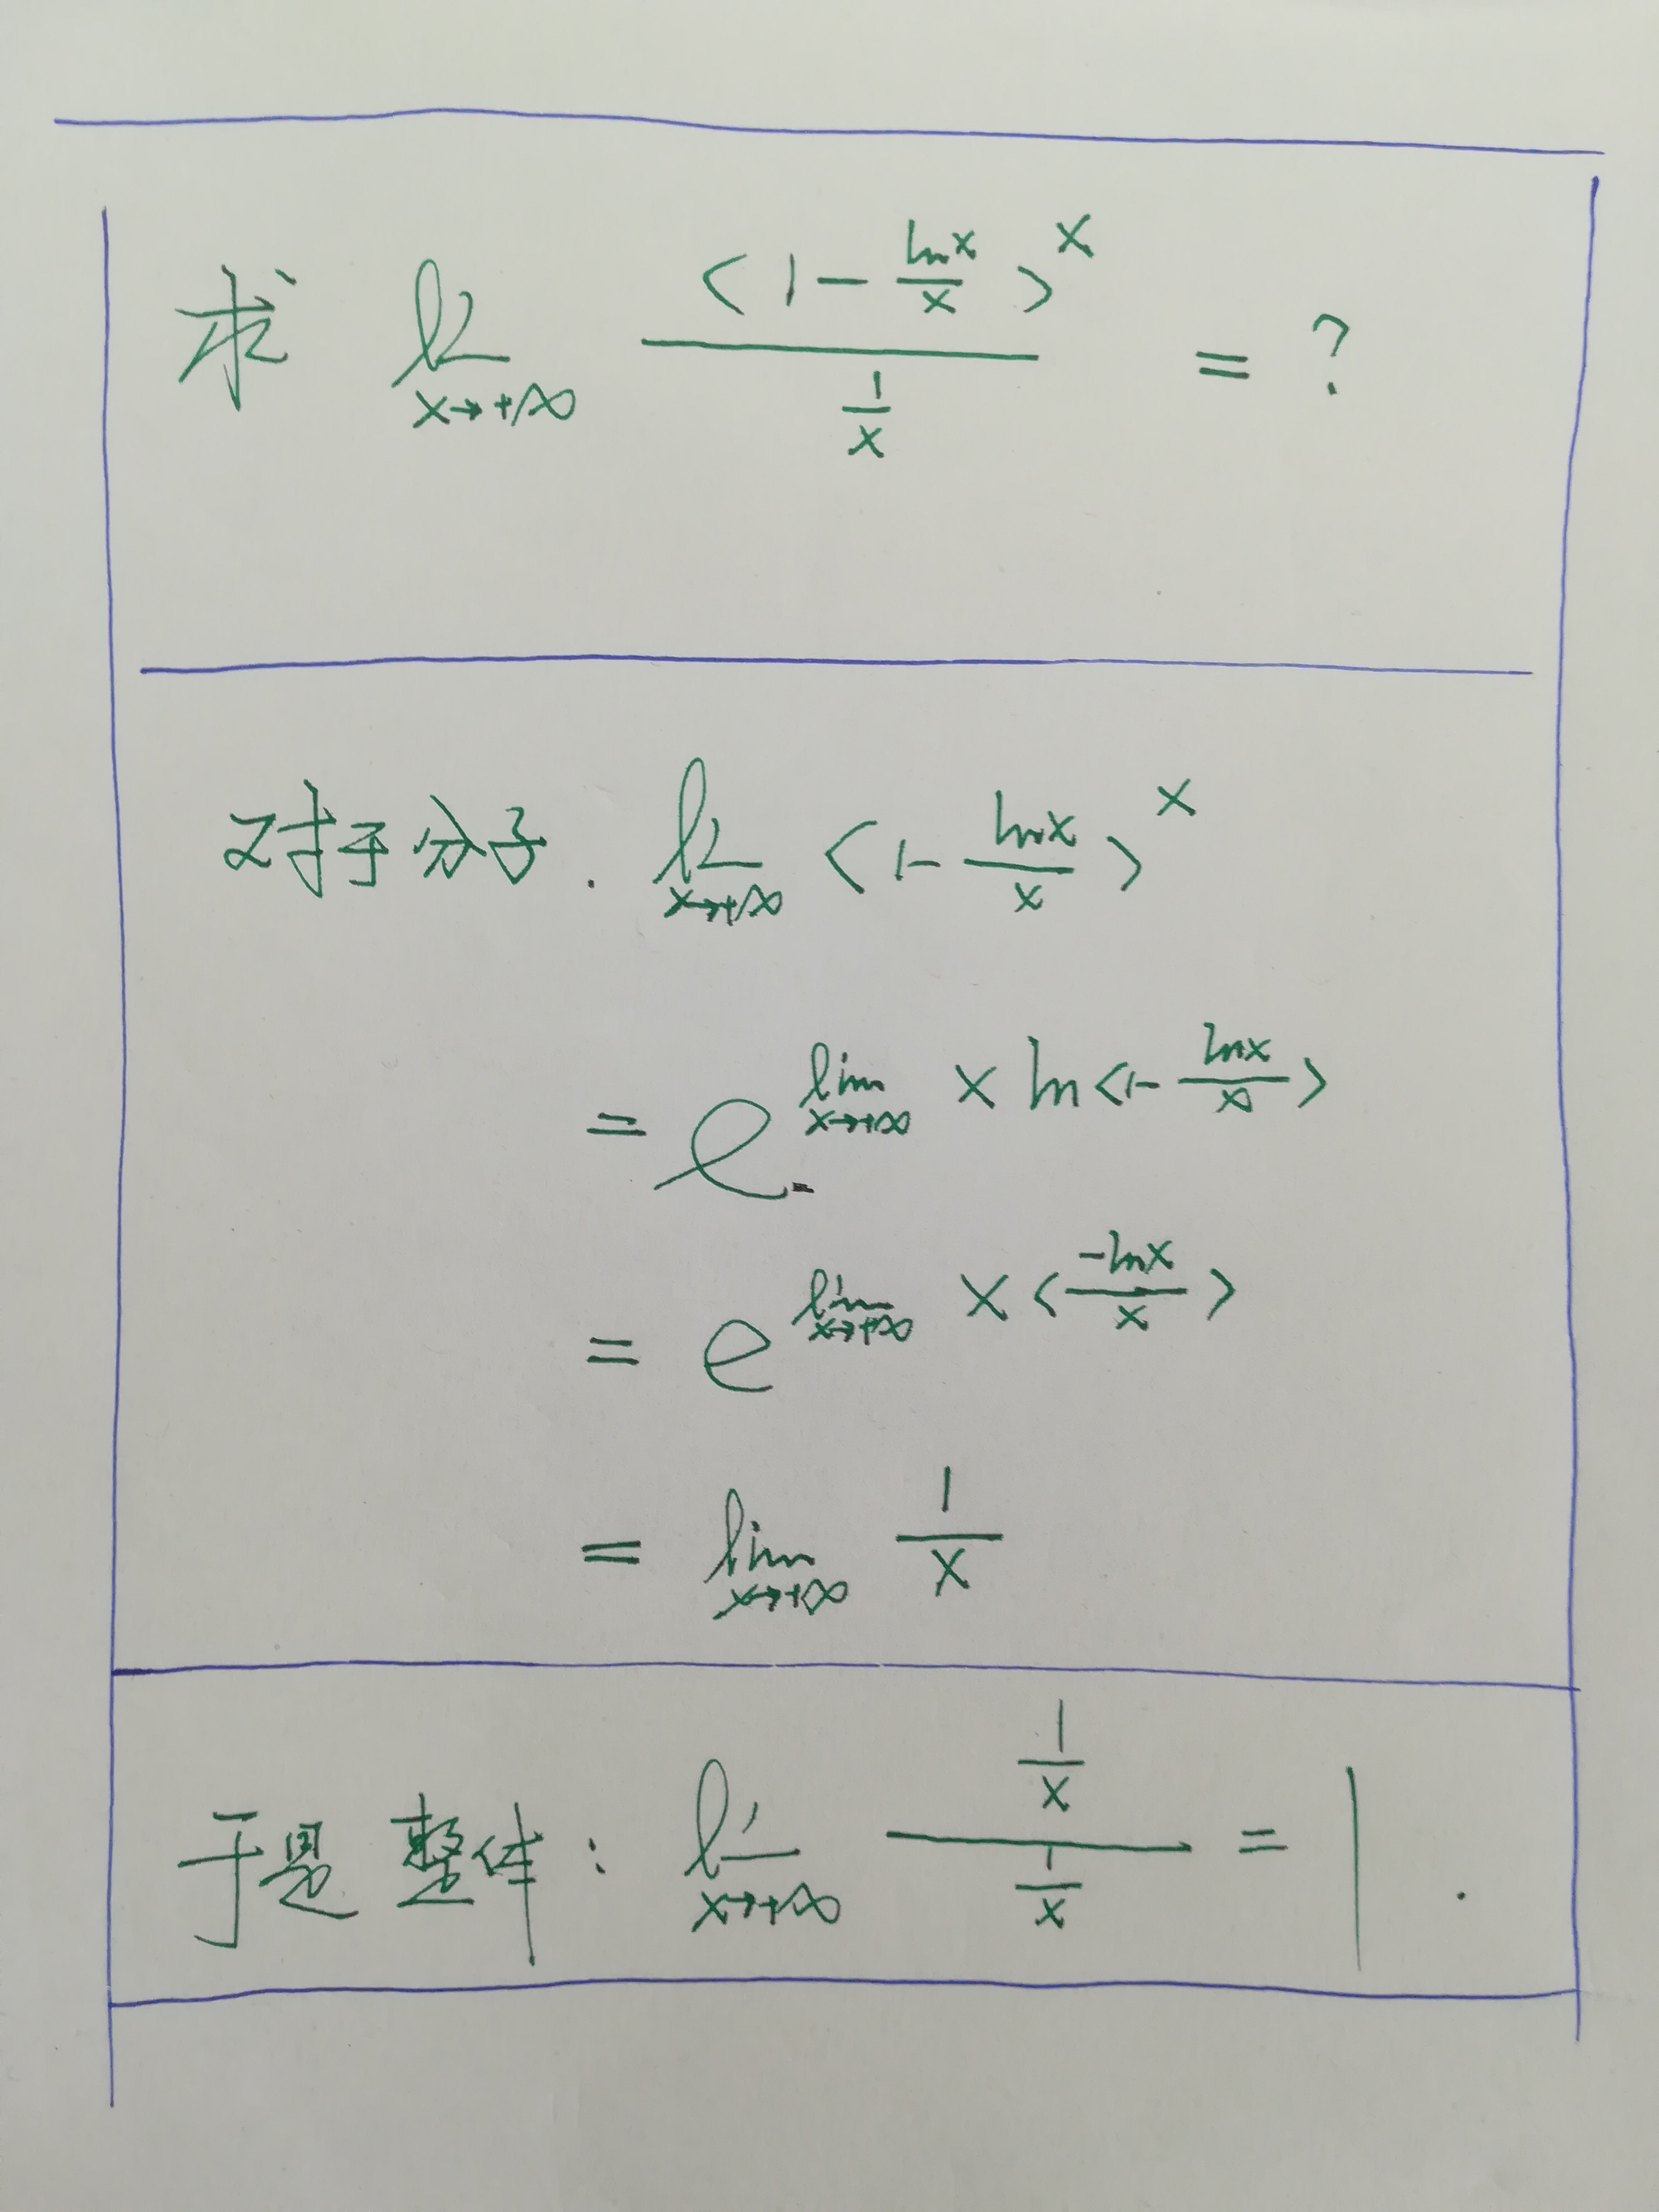 求 lim x→+∞ <1 - lnx/x>^x / (1/x) = ?
对于分子. lim x→+∞ <1 - lnx/x>^x
= e^(lim x→+∞ x ln<1 - lnx/x>)
= e^(lim x→+∞ x <-lnx/x>)
= lim x→+∞ 1/x
于是整体: lim x→+∞ (1/x) / (1/x) = 1.